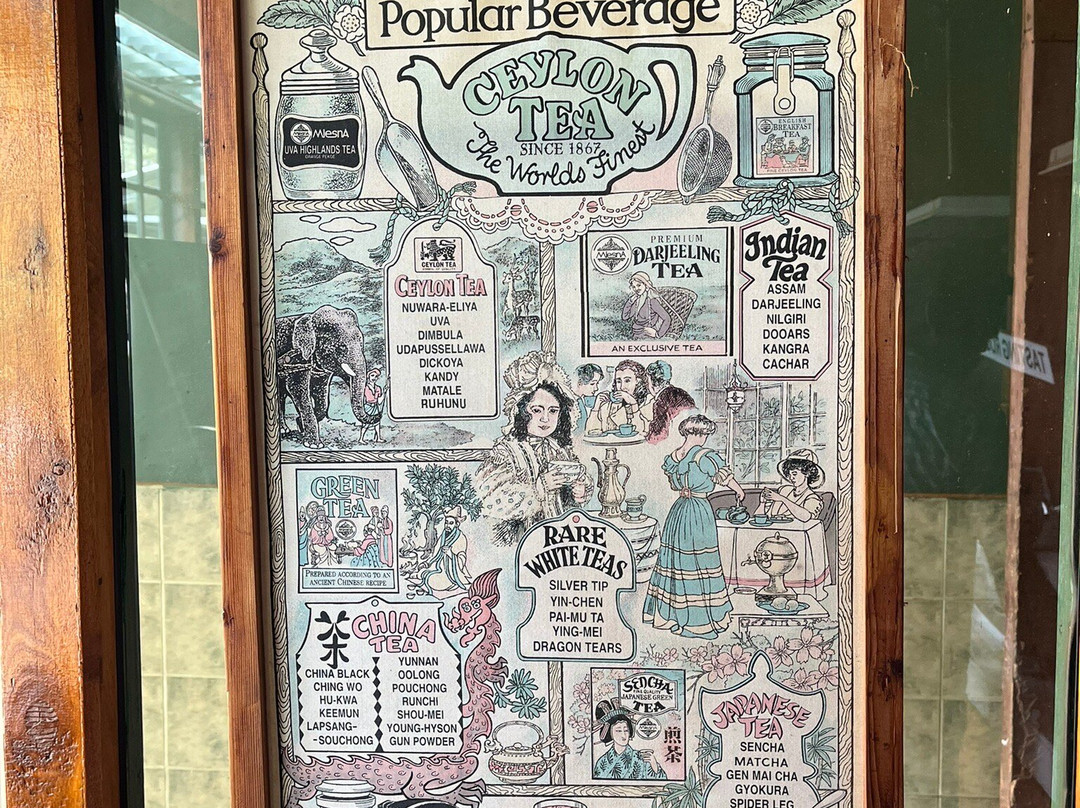 Popular Beverage
CEYLON
TEA
SINCE 1867
The Worlds Finest
MlesnA
UVA HIGHLANDS TEA
ORANGE PEKOE
ENGLISH
BREAKFAST
TEA
FINE CEYLON TEA
CEYLON TEA
SYMBOL OF QUALITY
CEYLON TEA
NUWARA-ELIYA
UVA
DIMBULA
UDAPUSSELLAWA
DICKOYA
KANDY
MATALE
RUHUNU
MlesnA
PREMIUM
DARJEELING
TEA
AN EXCLUSIVE TEA
Indian
Tea
ASSAM
DARJEELING
NILGIRI
DOOARS
KANGRA
CACHAR
TASTING
GREEN
TEA
PREPARED ACCORDING TO AN
ANCIENT CHINESE RECIPE
RARE
WHITE TEAS
SILVER TIP
YIN-CHEN
PAI-MU TA
YING-MEI
DRAGON TEARS
茶
CHINA
TEA
CHINA BLACK
CHING WO
HU-KWA
KEEMUN
LAPSANG-
-SOUCHONG
YUNNAN
OOLONG
POUCHONG
RUNCHI
SHOU-MEI
YOUNG-HYSON
GUN POWDER
SENCHA
FINE QUALITY
JAPANESE GREEN
TEA
煎茶
JAPANESE
TEA
SENCHA
MATCHA
GEN MAI CHA
GYOKURA
SPIDER LEG